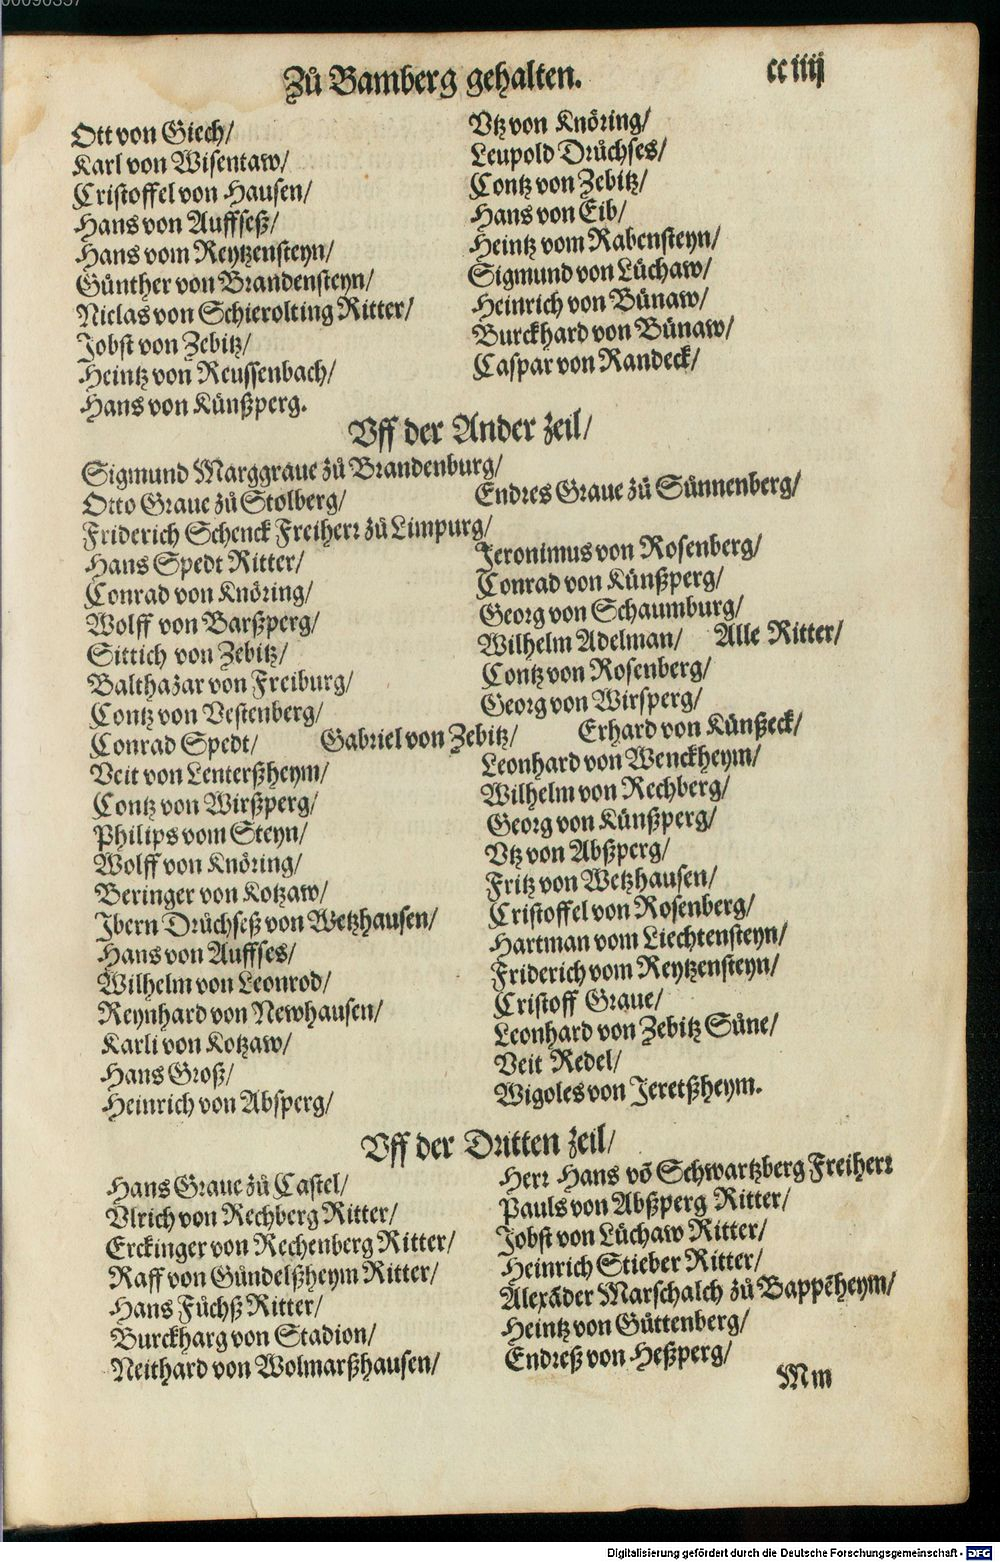 00090357
Zů Bamberg gehalten.
cc iiij
Ott von Giech/
Karl von Wisentaw/
Cristoffel von Hausen/
Hans von Auffseß/
Hans vom Reytzensteyn/
Günther von Brandensteyn/
Niclas von Schierolting Ritter/
Jobst von Zebitz/
Heintz von Reussenbach/
Hans von Künßperg.
Vtz von Knöring/
Leupold Drüchses/
Contz von Zebitz/
Hans von Eib/
Heintz vom Rabensteyn/
Sigmund von Lüchaw/
Heinrich von Bünaw/
Burckhard von Bünaw/
Caspar von Randeck/
Vff der Ander zeil/
Sigmund Marggraue zů Brandenburg/
Otto Graue zů Stolberg/
Endres Graue zů Sünnenberg/
Friderich Schenck Freiherr zů Limpurg/
Hans Spedt Ritter/
Conrad von Knöring/
Wolff von Barßperg/
Sittich von Zebitz/
Balthazar von Freiburg/
Contz von Vestenberg/
Jeronimus von Rosenberg/
Conrad von Künßperg/
Georg von Schaumburg/
Wilhelm Adelman/ Alle Ritter/
Contz von Rosenberg/
Georg von Wirsperg/
Conrad Spedt/ Gabriel von Zebitz/ Erhard von Künßeck/
Veit von Lenterßheym/
Contz von Wirßperg/
Philips vom Steyn/
Wolff von Knöring/
Beringer von Kotzaw/
Jbern Drüchseß von Wetzhausen/
Hans von Auffses/
Wilhelm von Leonrod/
Reynhard von Newhausen/
Karli von Kotzaw/
Hans Groß/
Heinrich von Absperg/
Leonhard von Wenckheym/
Wilhelm von Rechberg/
Georg von Künßperg/
Vtz von Abßperg/
Fritz von Wetzhausen/
Cristoffel von Rosenberg/
Hartman vom Liechtensteyn/
Friderich vom Reytzensteyn/
Cristoff Graue/
Leonhard von Zebitz Süne/
Veit Redel/
Wigoles von Jeretßheym.
Vff der Dritten zeil/
Hans Graue zů Castel/
Vlrich von Rechberg Ritter/
Erckinger von Rechenberg Ritter/
Raff von Gündelßheym Ritter/
Hans Füchß Ritter/
Burckharg von Stadion/
Neithard von Wolmarßhausen/
Herr Hans vō Schwartzberg Freiherr
Pauls von Abßperg Ritter/
Jobst von Lüchaw Ritter/
Heinrich Stieber Ritter/
Alexāder Marschalch zů Bappēheym/
Heintz von Güttenberg/
Endreß von Heßperg/
Mm
Digitalisierung gefördert durch die Deutsche Forschungsgemeinschaft - DFG